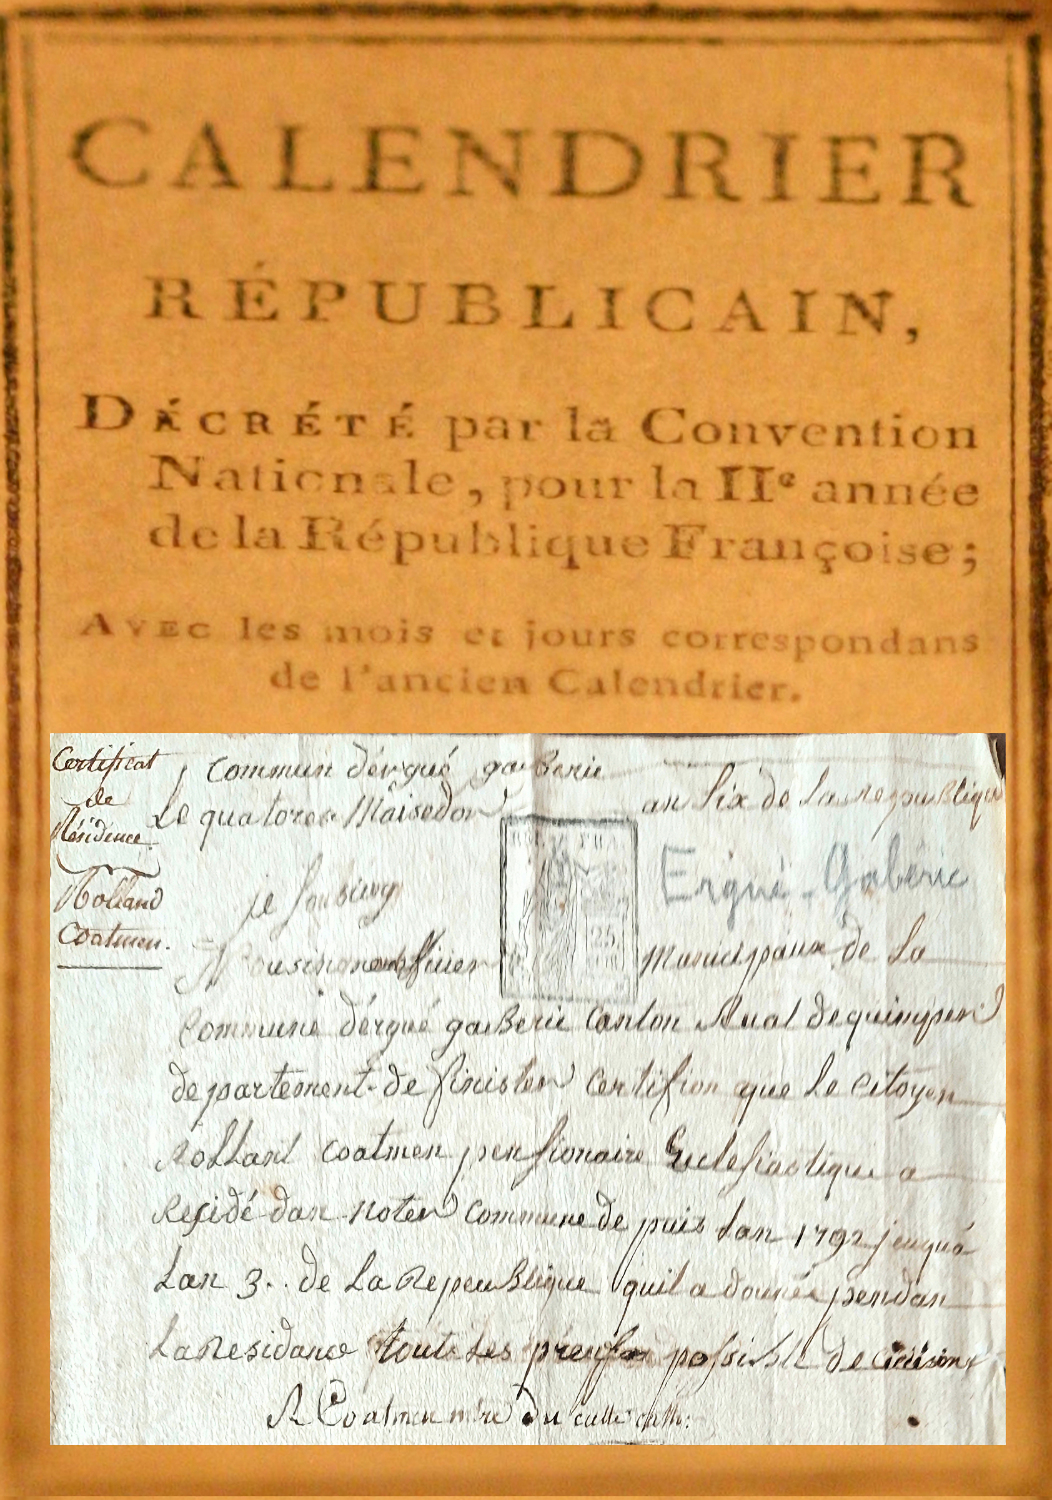 CALENDRIER
RÉPUBLICAIN,
DÉCRÉTÉ par la Convention
Nationale, pour la IIe année
de la République Françoise;
AVEC les mois et jours correspondans
de l'ancien Calendrier.
Certificat
de
Résidence
Rolland
Coatmen.
Commun dérgué gaberie
Le quatorse Maisedor an six de La republique
Ergué-Gabéric
je Soubsigné
officier municipaux de La
Commune dérgué gaberie Canton Rual de quimper
departement de finister Certifion que Le Citoyen
Rolland Coatmen pensionaire Eclesiastique a
Residé dan noter Commune de puis Lan 1792 jeuqua
Lan 3.. de La Repeublique quil a donné pendan
La Residance toute Les possible de
R Coatmen du culte cath:
25